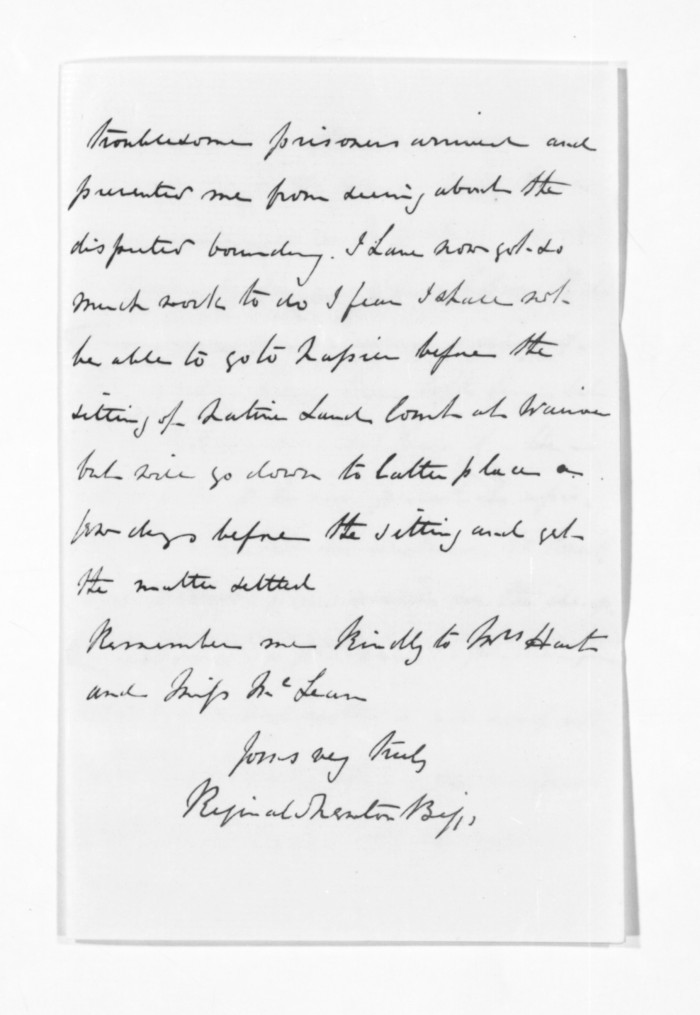 troublesome prisoners arrived and
prevented me from seeing about the
disputed boundary. I have now got so
much work to do I fear I shall not
be able to go to Napier before the
sitting of Native Land Court at Wairoa
but will go down to latter place a
few days before the sitting and get
the matter settled
Remember me kindly to Mrs Hart
and Miss McLean
Yours very truly
Reginald Newton Biggs